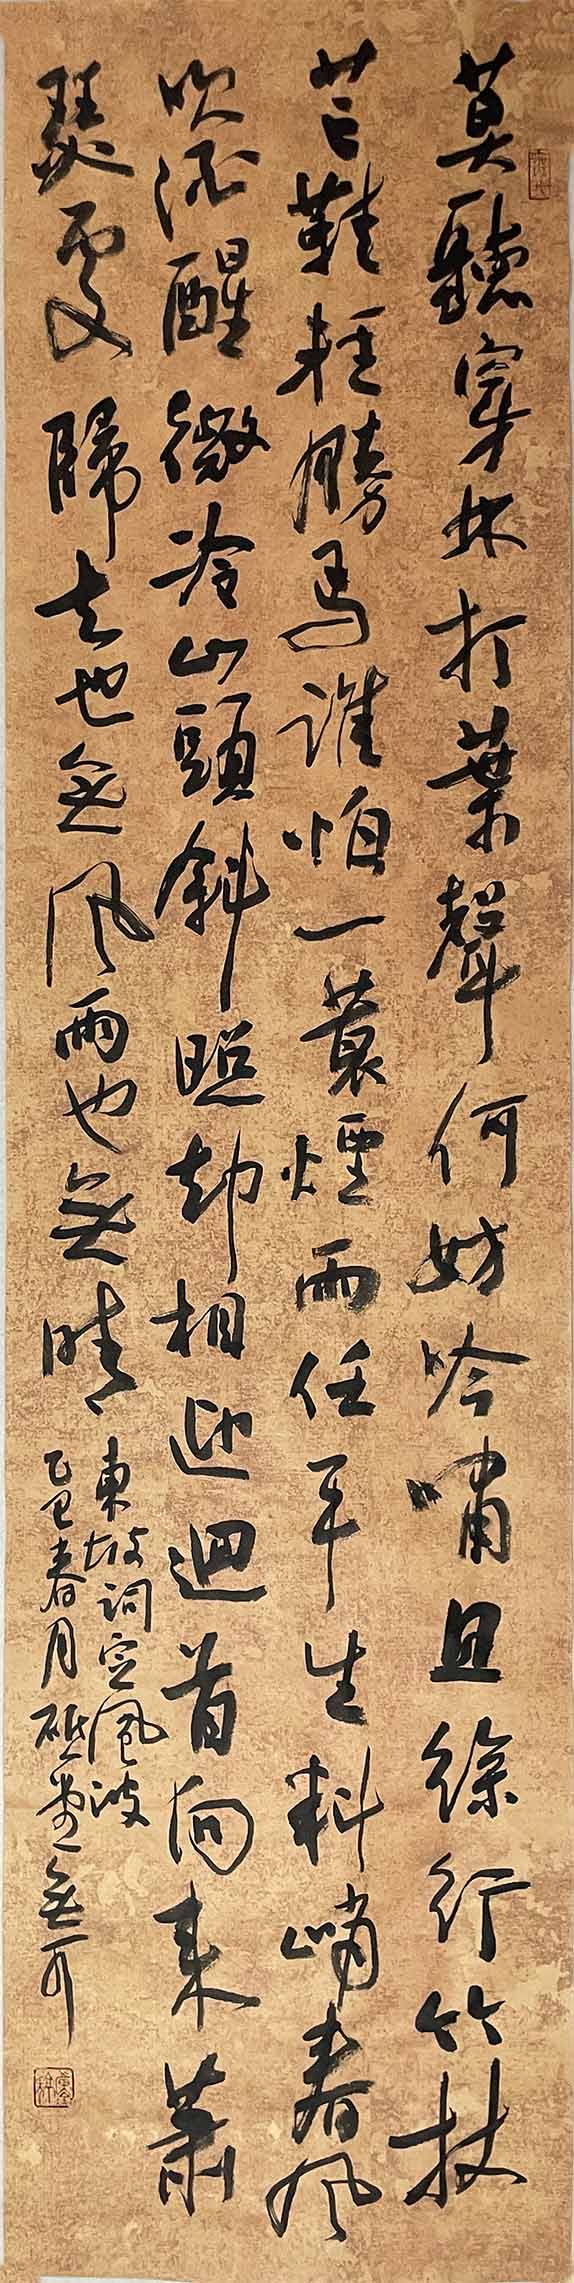 莫聽穿林打葉聲何妨吟嘯且徐行竹杖
芒鞋輕勝馬誰怕一蓑煙雨任平生料峭春風
吹酒醒微冷山頭斜照却相迎迴首向來蕭
瑟處歸去也無風雨也無晴
東坡詞定風波
乙巳春月